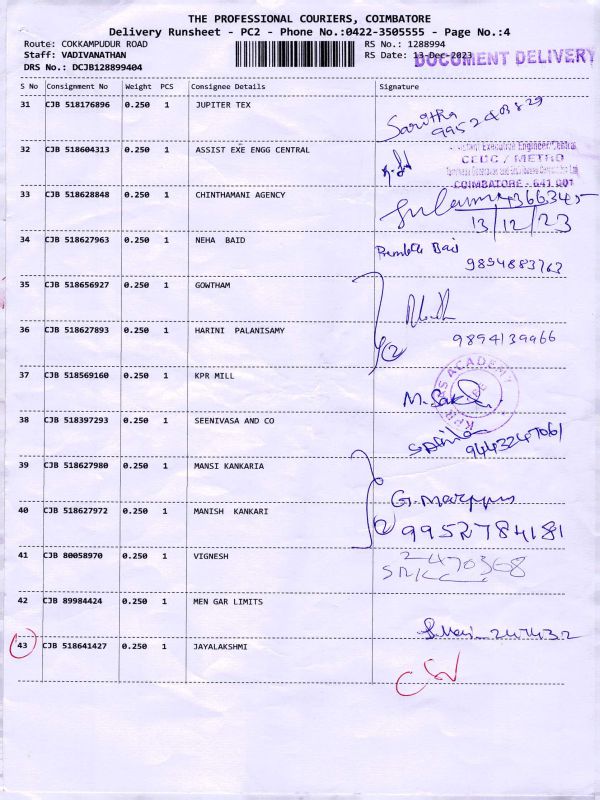 THE PROFESSIONAL COURIERS, COIMBATORE
Delivery Runsheet - PC2 - Phone No.:0422-3505555 - Page No.:4
Route: COKKAMPUDUR ROAD RS No.: 1288994
Staff: VADIVANATHAN RS Date: 13-Dec-2023
DOCUMENT DELIVERY
DRS No.: DCJB128899404
S No Consignment No Weight PCS Consignee Details Signature
31 CJB 518176896 0.250 1 JUPITER TEX
Saritha
32 CJB 518604313 0.250 1 ASSIST EXE ENGG CENTRAL
Assistant Executive Engineer/Central
CEDC / METRO
COIMBATORE - 641 001
33 CJB 518628848 0.250 1 CHINTHAMANI AGENCY
13/12/23
34 CJB 518627963 0.250 1 NEHA BAID
Baid
9894883763
35 CJB 518656927 0.250 1 GOWTHAM
36 CJB 518627893 0.250 1 HARINI PALANISAMY
9894139966
37 CJB 518569160 0.250 1 KPR MILL
KPR IAS ACADEMY
38 CJB 518397293 0.250 1 SEENIVASA AND CO
9443247061
39 CJB 518627980 0.250 1 MANSI KANKARIA
40 CJB 518627972 0.250 1 MANISH KANKARI
9952784181
41 CJB 80058970 0.250 1 VIGNESH
2470368
42 CJB 89984424 0.250 1 MEN GAR LIMITS
43 CJB 518641427 0.250 1 JAYALAKSHMI